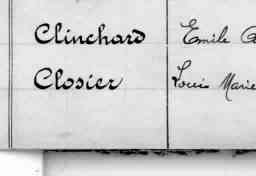 Clinchard Emile
Closier Louis Marie